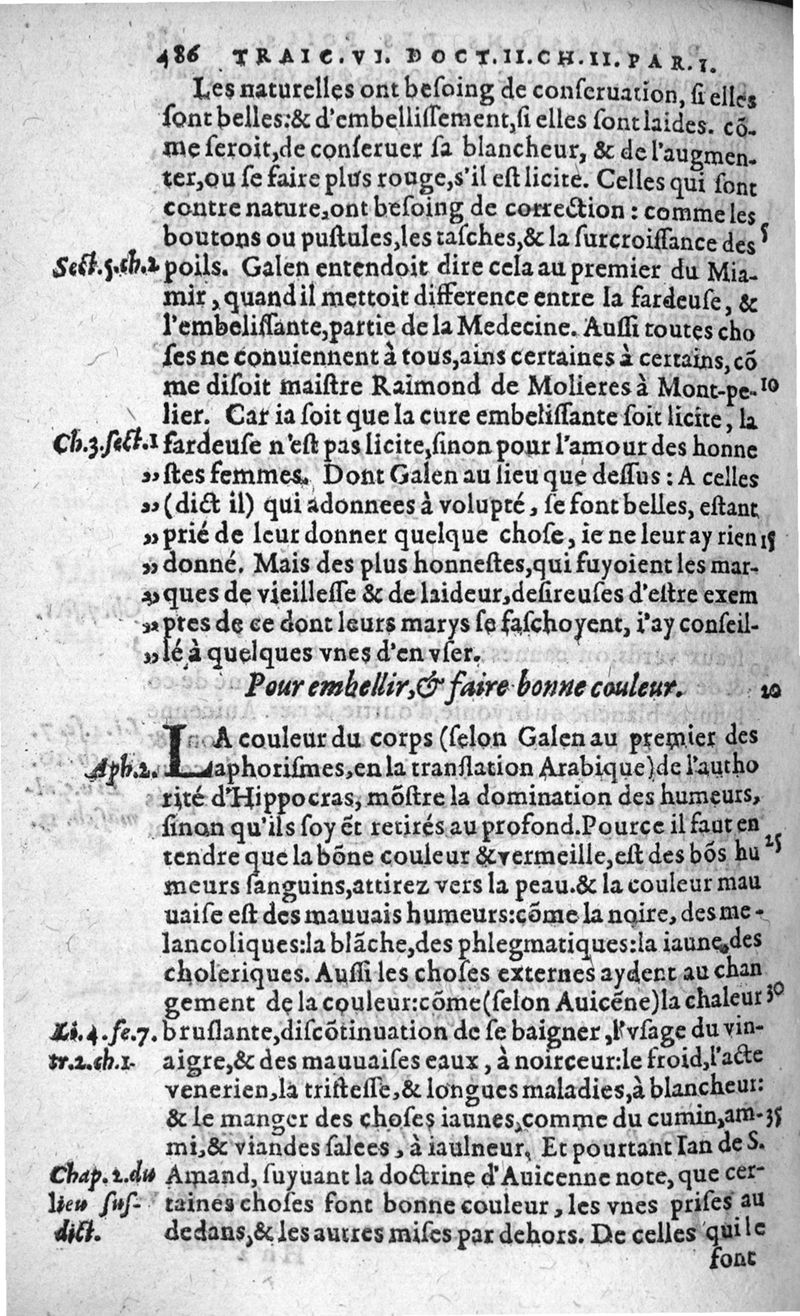 486 TRAIC.VI. DOCT.II.CH.II.PAR.I.
Les naturelles ont beſoing de conſeruation, ſi elles
ſont belles:& d'embelliſſement,ſi elles ſont laides. cõ-
me ſeroit,de conſeruer ſa blancheur, & de l'augmen-
ter,ou ſe faire plus rouge,s'il eſt licite. Celles qui ſont
contre nature,ont beſoing de correction : comme les
boutons ou puſtules,les taſches,& la ſurcroiſſance des 5
Sect.5.ch.2 poils. Galen entendoit dire cela au premier du Mia-
mir, quand il mettoit difference entre la fardeuſe, &
l'embeliſſante,partie de la Medecine. Auſſi toutes cho
ſes ne conuiennent à tous,ains certaines à certains, cõ
me diſoit maiſtre Raimond de Molieres à Mont-pe- 10
lier. Car ia ſoit que la cure embeliſſante ſoit licite, la
Ch.3.ſect.1 fardeuſe n'eſt pas licite,ſinon pour l'amour des honne
„ ſtes femmes. Dont Galen au lieu que deſſus : A celles
„ (dict il) qui adonnees à volupté, ſe font belles, eſtant
„ prié de leur donner quelque choſe, ie ne leur ay rien 15
„ donné. Mais des plus honneſtes,qui fuyoient les mar-
„ ques de vieilleſſe & de laideur,deſireuſes d'eſtre exem
„ ptes de ce dont leurs marys ſe faſchoyent, i'ay conſeil-
„ lé à quelques vnes d'en vſer.
Pour embellir,& faire bonne couleur. 20
LA couleur du corps (ſelon Galen au premier des
Aph.2. aphoriſmes,en la tranſlation Arabique) de l'autho
rité d'Hippocras, mõſtre la domination des humeurs,
ſinon qu'ils ſoyẽt retirés au profond.Pource il faut en
tendre que la bõne couleur & vermeille,eſt des bõs hu 25
meurs ſanguins,attirez vers la peau.& la couleur mau
uaiſe eſt des mauuais humeurs:cõme la noire, des me-
lancoliques:la blãche,des phlegmatiques:la iaune,des
choleriques. Auſſi les choſes externes aydent au chan
gement de la couleur:cõme(ſelon Auicẽne)la chaleur 30
Li.4.ſe.7. bruſlante,diſcõtinuation de ſe baigner,l'vſage du vin-
tr.2.ch.1. aigre,& des mauuaiſes eaux, à noirceur:le froid,l'acte
venerien,la triſteſſe,& longues maladies,à blancheur:
& le manger des choſes iaunes,comme du cumin,am- 35
mi,& viandes ſalees, à iaulneur. Et pourtant Ian de S.
Chap.2.du Amand, ſuyuant la doctrine d'Auicenne note, que cer-
lieu ſuſ- taines choſes font bonne couleur, les vnes priſes au
dict. dedans,& les autres miſes par dehors. De celles qui le
font